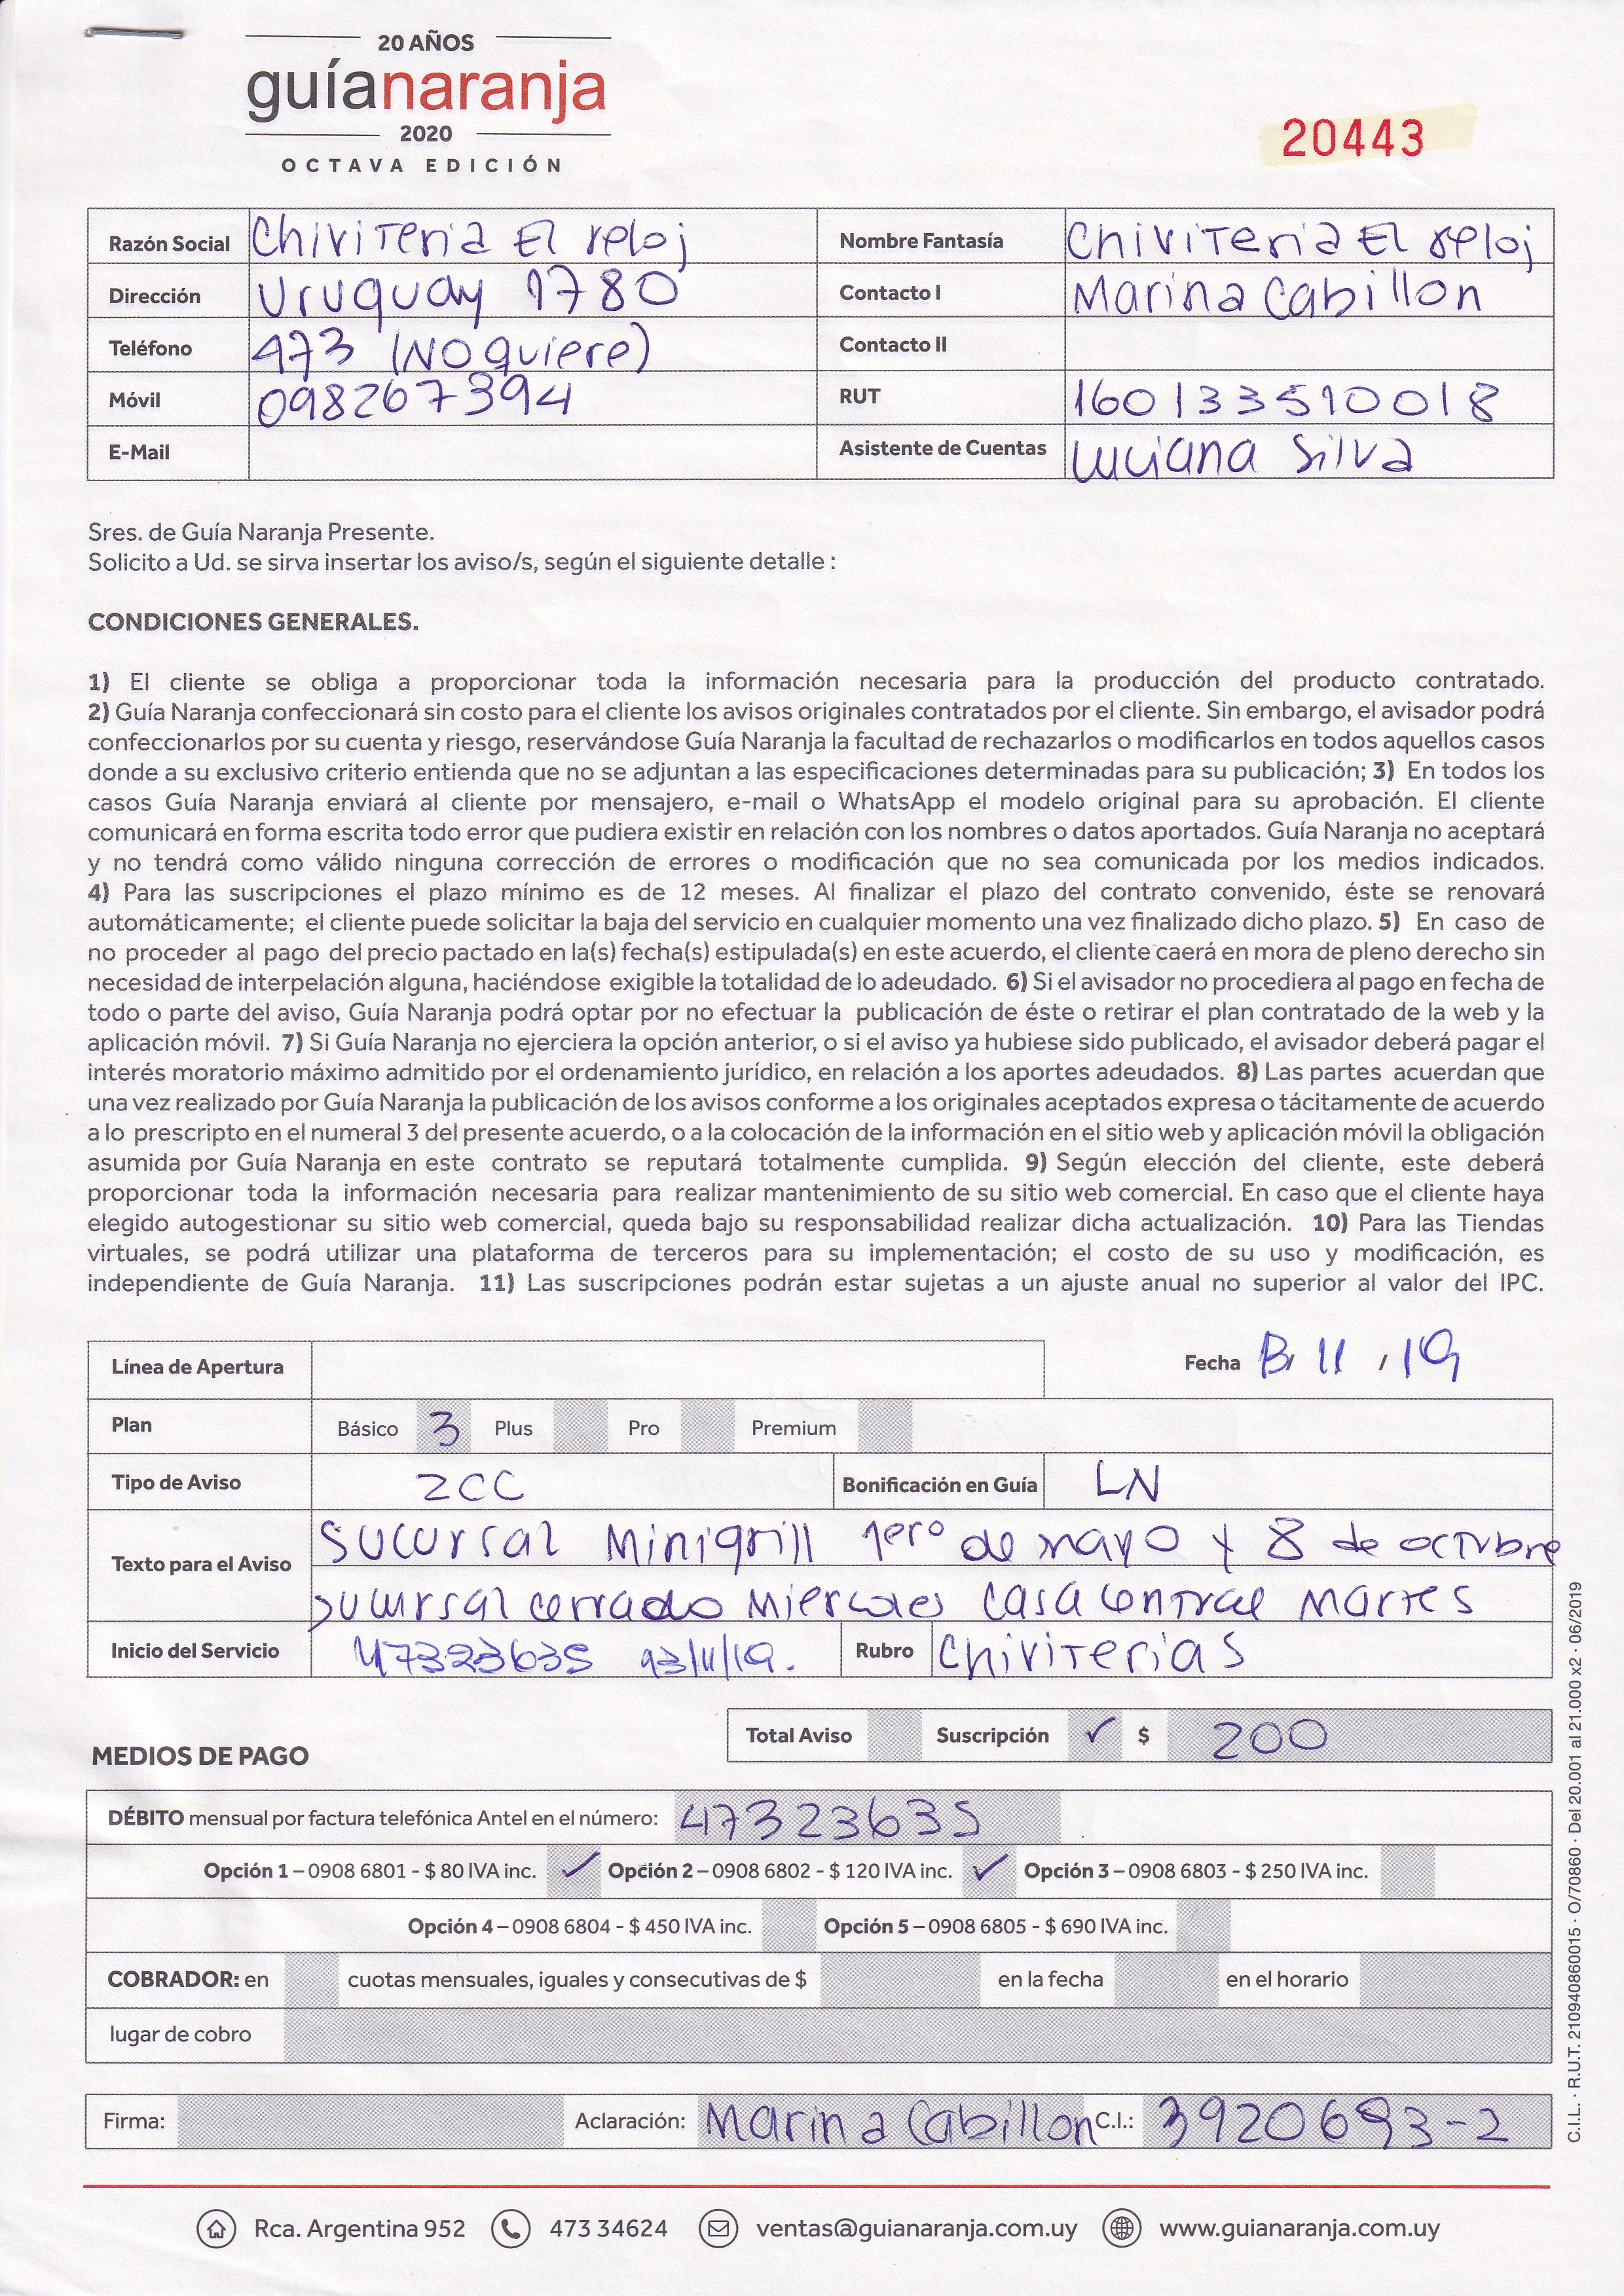 20 AÑOS
guíanaranja
2020
OCTAVA EDICIÓN
20443
Razón Social Chiviteria El reloj Nombre Fantasía Chiviteria El reloj
Dirección Uruguay 1780 Contacto I Marina Cabillon
Teléfono 473 (NO quiere) Contacto II
Móvil 098267394 RUT 160133510018
E-Mail Asistente de Cuentas Luciana Silva
Sres. de Guía Naranja Presente.
Solicito a Ud. se sirva insertar los aviso/s, según el siguiente detalle :
CONDICIONES GENERALES.
1) El cliente se obliga a proporcionar toda la información necesaria para la producción del producto contratado.
2) Guía Naranja confeccionará sin costo para el cliente los avisos originales contratados por el cliente. Sin embargo, el avisador podrá
confeccionarlos por su cuenta y riesgo, reservándose Guía Naranja la facultad de rechazarlos o modificarlos en todos aquellos casos
donde a su exclusivo criterio entienda que no se adjuntan a las especificaciones determinadas para su publicación; 3) En todos los
casos Guía Naranja enviará al cliente por mensajero, e-mail o WhatsApp el modelo original para su aprobación. El cliente
comunicará en forma escrita todo error que pudiera existir en relación con los nombres o datos aportados. Guía Naranja no aceptará
y no tendrá como válido ninguna corrección de errores o modificación que no sea comunicada por los medios indicados.
4) Para las suscripciones el plazo mínimo es de 12 meses. Al finalizar el plazo del contrato convenido, éste se renovará
automáticamente; el cliente puede solicitar la baja del servicio en cualquier momento una vez finalizado dicho plazo. 5) En caso de
no proceder al pago del precio pactado en la(s) fecha(s) estipulada(s) en este acuerdo, el cliente caerá en mora de pleno derecho sin
necesidad de interpelación alguna, haciéndose exigible la totalidad de lo adeudado. 6) Si el avisador no procediera al pago en fecha de
todo o parte del aviso, Guía Naranja podrá optar por no efectuar la publicación de éste o retirar el plan contratado de la web y la
aplicación móvil. 7) Si Guía Naranja no ejerciera la opción anterior, o si el aviso ya hubiese sido publicado, el avisador deberá pagar el
interés moratorio máximo admitido por el ordenamiento jurídico, en relación a los aportes adeudados. 8) Las partes acuerdan que
una vez realizado por Guía Naranja la publicación de los avisos conforme a los originales aceptados expresa o tácitamente de acuerdo
a lo prescripto en el numeral 3 del presente acuerdo, o a la colocación de la información en el sitio web y aplicación móvil la obligación
asumida por Guía Naranja en este contrato se reputará totalmente cumplida. 9) Según elección del cliente, este deberá
proporcionar toda la información necesaria para realizar mantenimiento de su sitio web comercial. En caso que el cliente haya
elegido autogestionar su sitio web comercial, queda bajo su responsabilidad realizar dicha actualización. 10) Para las Tiendas
virtuales, se podrá utilizar una plataforma de terceros para su implementación; el costo de su uso y modificación, es
independiente de Guía Naranja. 11) Las suscripciones podrán estar sujetas a un ajuste anual no superior al valor del IPC.
Línea de Apertura Fecha 13/ 11 / 19
Plan Básico 3 Plus Pro Premium
Tipo de Aviso 2CC Bonificación en Guía LN
Texto para el Aviso
Sucursal Minigrill 1ero de mayo y 8 de octubre
sucursal cerrado Miercoles Casa Central Martes
Inicio del Servicio 47323635 13/11/19. Rubro Chiviterias
Total Aviso Suscripción ✓ $ 200
MEDIOS DE PAGO
DÉBITO mensual por factura telefónica Antel en el número: 47323635
Opción 1 – 0908 6801 - $ 80 IVA inc. ✓ Opción 2 – 0908 6802 - $ 120 IVA inc. ✓ Opción 3 – 0908 6803 - $ 250 IVA inc.
Opción 4 – 0908 6804 - $ 450 IVA inc. Opción 5 – 0908 6805 - $ 690 IVA inc.
COBRADOR: en cuotas mensuales, iguales y consecutivas de $ en la fecha en el horario
lugar de cobro
Firma: Aclaración: Marina Cabillon C.I.: 3920693-2
C.I.L. · R.U.T. 210940860015 · O/70860 · Del 20.001 al 21.000 x2 · 06/2019
Rca. Argentina 952 473 34624 ventas@guianaranja.com.uy www.guianaranja.com.uy